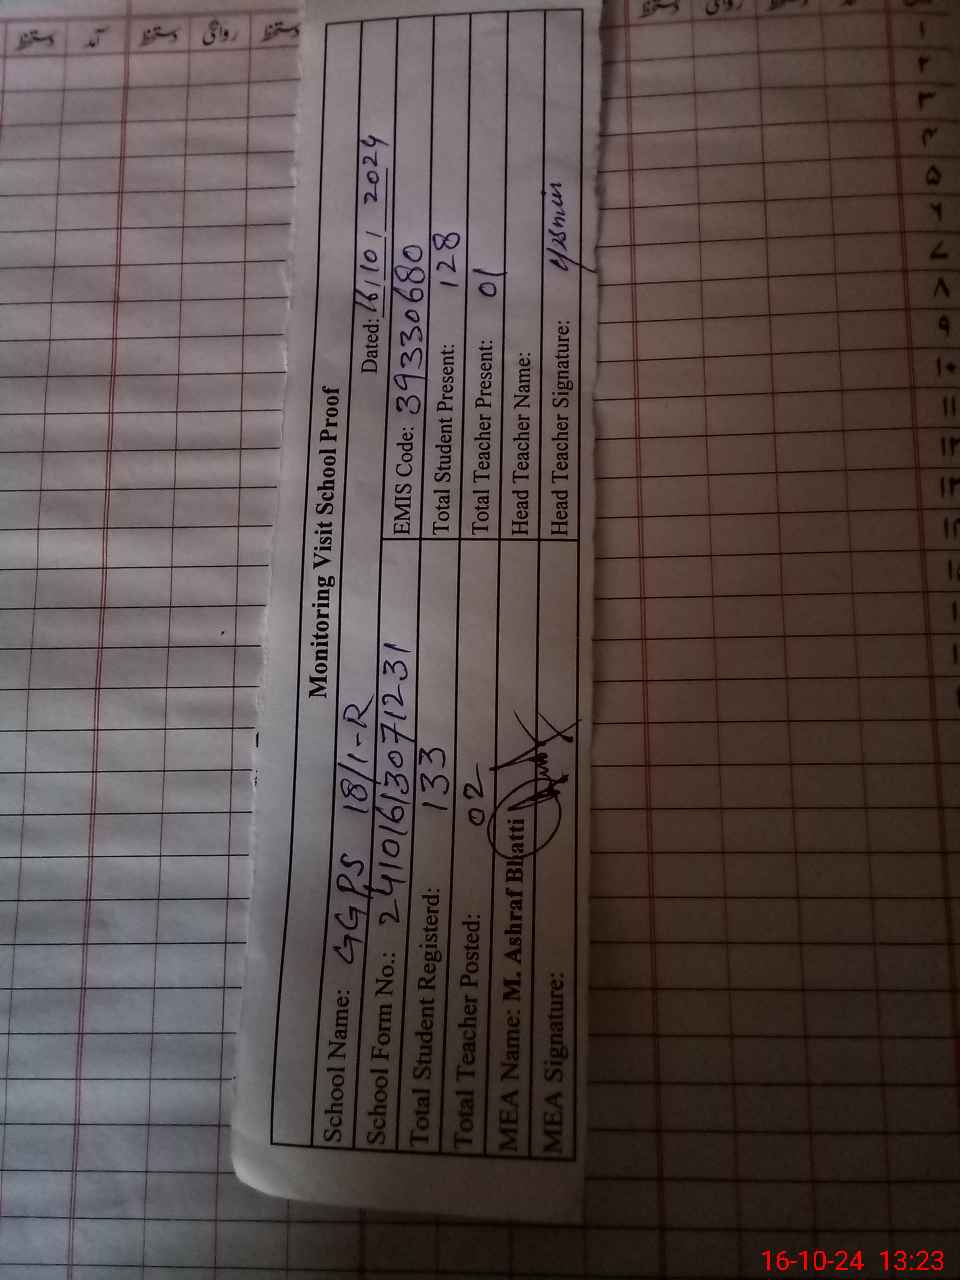 Monitoring Visit School Proof
School Name: GGPS 18/1-R Dated: 16/10/2024
School Form No.: 24101613071231 EMIS Code: 39330680
Total Student Registerd: 133 Total Student Present: 128
Total Teacher Posted: 02 Total Teacher Present: 01
MEA Name: M. Ashraf Bhatti Head Teacher Name:
MEA Signature: Head Teacher Signature: Yasmin
دستخط آمد دستخط روانگی دستخط
16-10-24 13:23